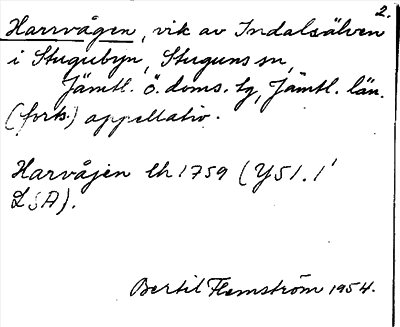 2.
Harrvågen, vik av Indalsälven
i Stugubyn, Stuguns sn,
Jämtl. ö. doms. tg, Jämtl. län.
(forts.) appellativ.
Harvåjen lh 1759 (Y51.1'
LSA).
Bertil Flemström 1954.